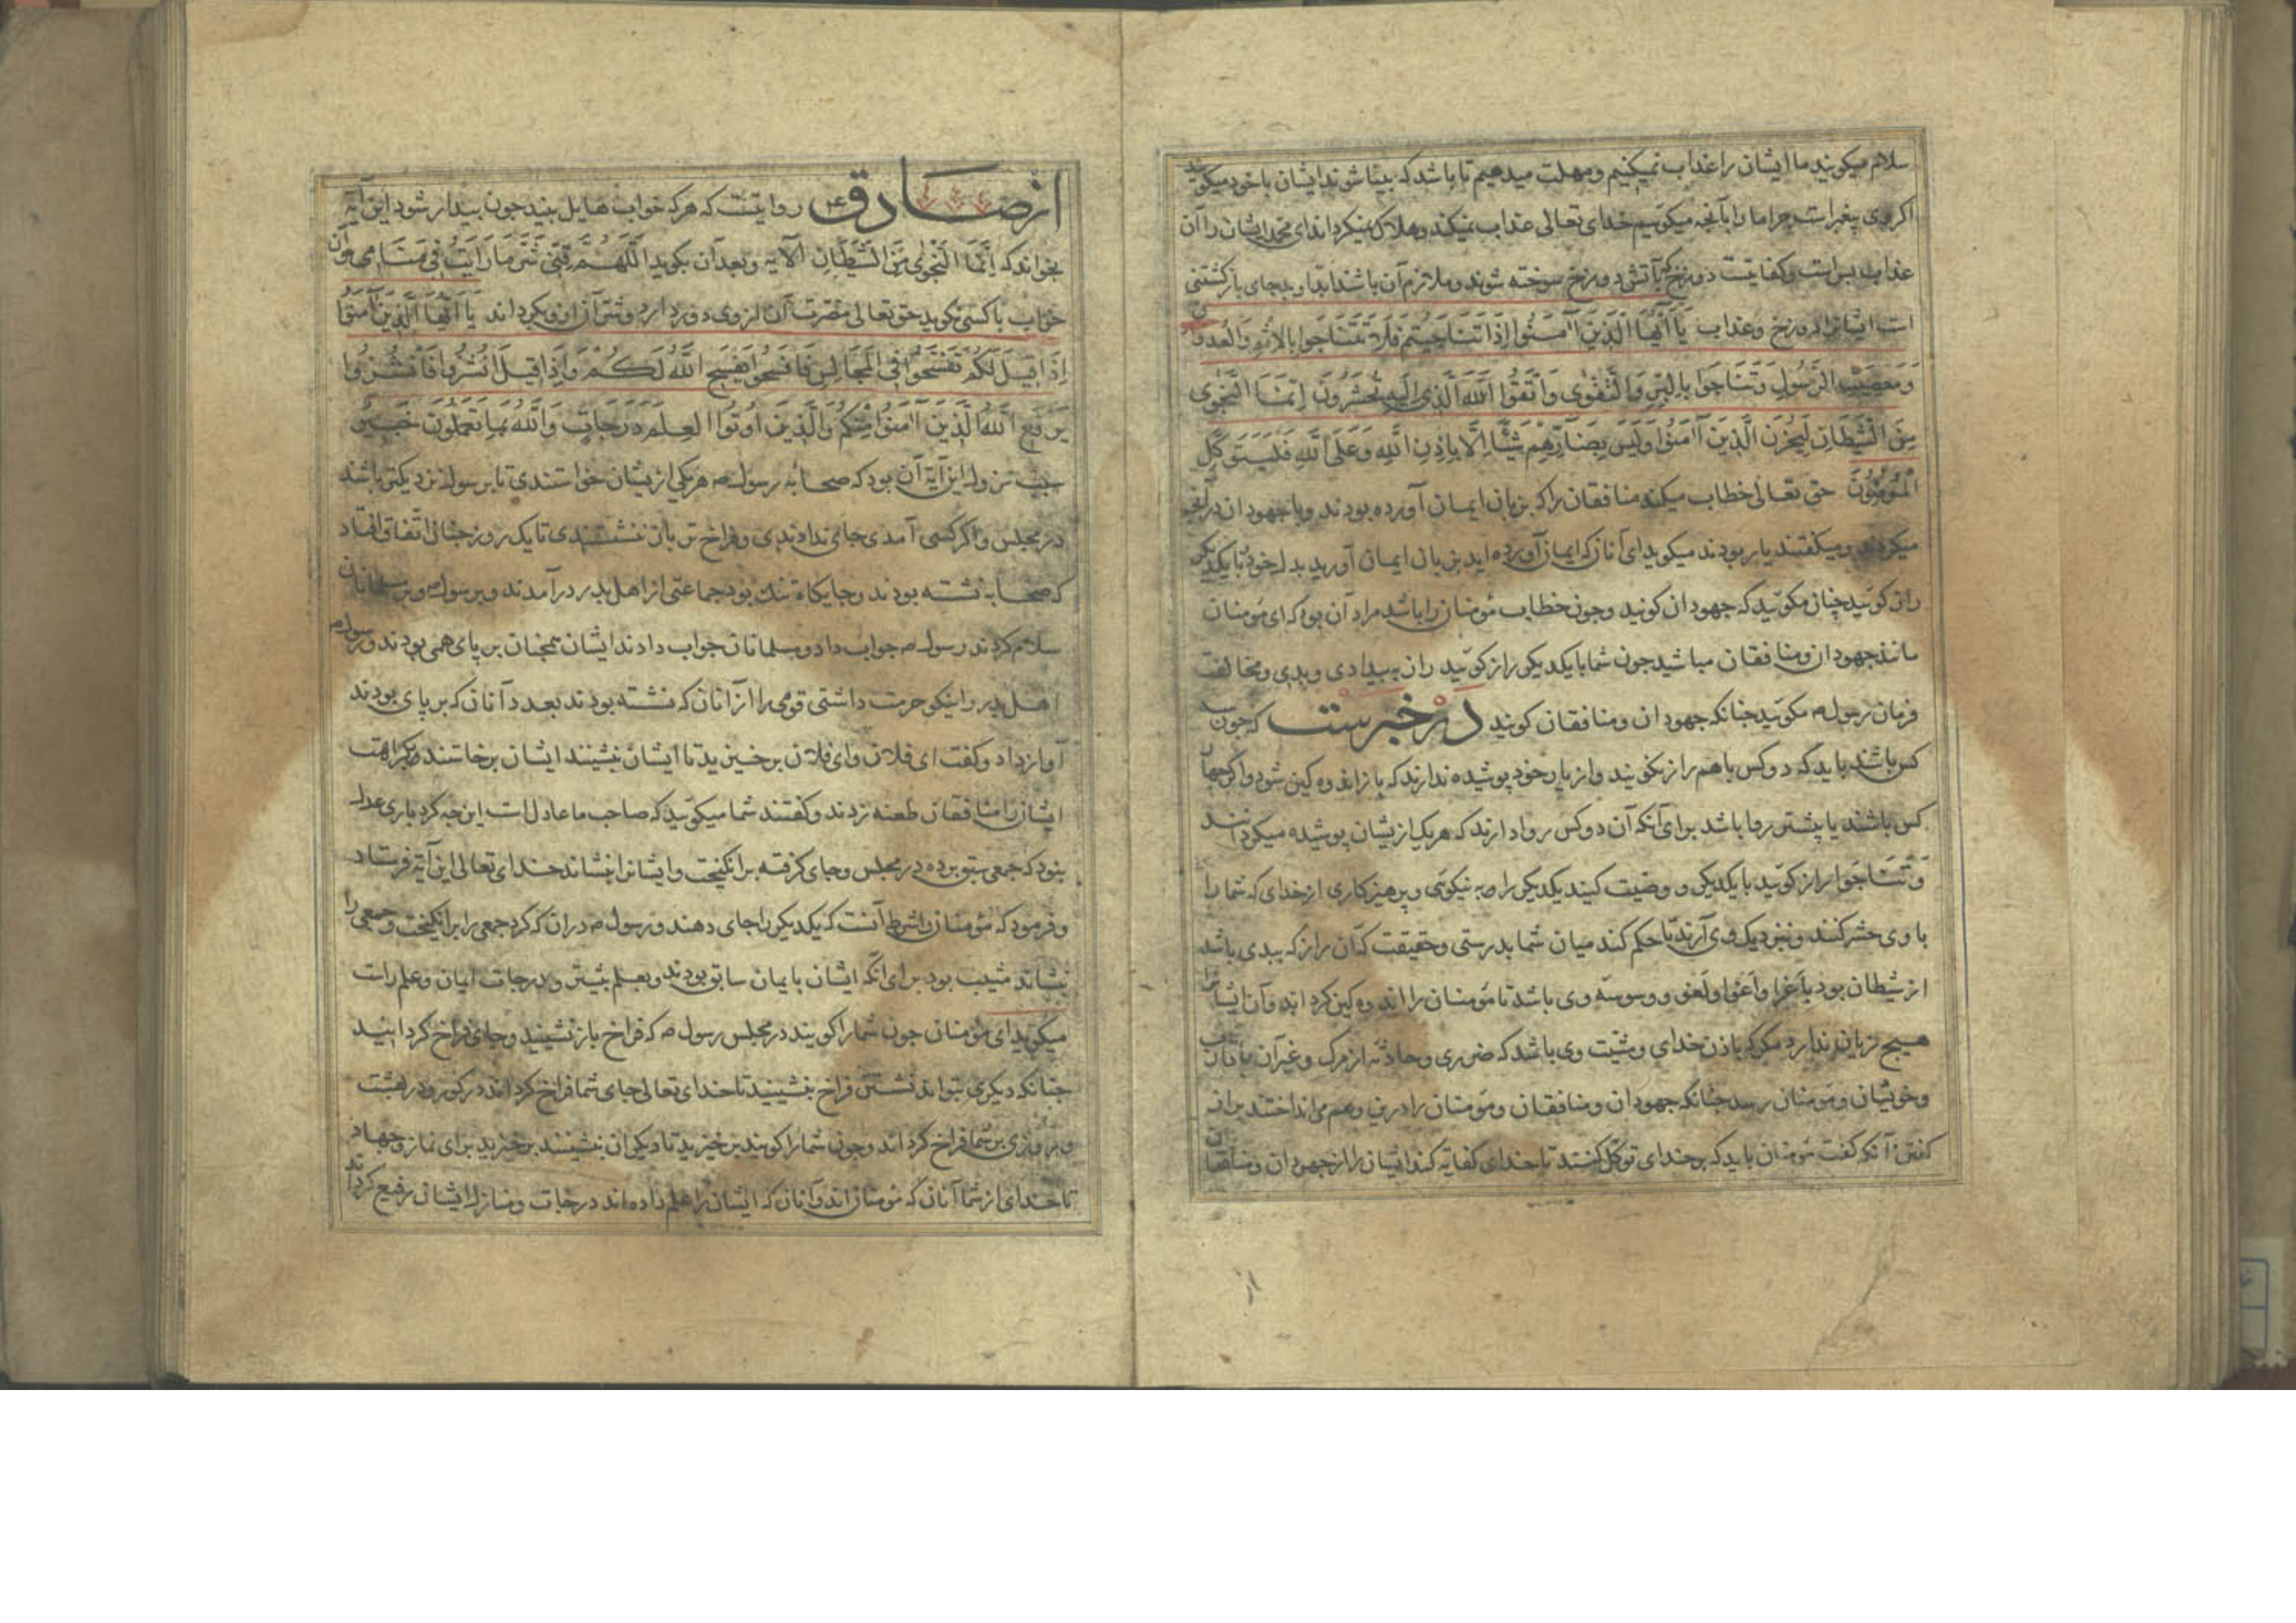 سلام میکویند ما ایشان را عذاب نمیکنیم ومهلت میدهیم تا باشد که بینا شوند ایشان با خود میکویند
اکر وی پغبراست جرا ما را بآنجه میکوئیم خدای تعالی عذاب نمیکند وهلاک نمیکرداند ای محمد ایشان را آن
عذاب بس است وکفایتست دوزخ که بآتش دوزخ سوخته شوند وملازم آن باشند ابدا وبد جای بازکشتنی
است ایشانرا دوزخ وعذاب یَا اَیُّهَا الَّذِینَ اٰمَنُوا اِذَا تَنَاجَیتُم فَلَا تَتَنَاجَوا بِالاِثمِ وَالعُدوَانِ
وَمَعصِیَتِ الرَّسُولِ وَتَنَاجَوا بِالبِرِّ وَالتَّقوٰی وَاتَّقُوا اللّٰهَ الَّذِی اِلَیهِ تُحشَرُونَ اِنَّمَا النَّجوٰی
مِنَ الشَّیطَانِ لِیَحزُنَ الَّذِینَ اٰمَنُوا وَلَیسَ بِضَارِّهِم شَیئًا اِلَّا بِاِذنِ اللّٰهِ وَعَلَی اللّٰهِ فَلیَتَوَکَّلِ
المُؤمِنُونَ حق تعالی خطاب میکند منافقان را که بزبان ایمان آورده بودند وبا جهودان در
میکردند ومیکفتند یار بودند میکوید ای آنان که ایمان آورده اید بزبان ایمان آورید بدل خود با یکدیکر
راز کوئید چنان مکوئید که جهودان کویند وجون خطاب مؤمنان را باشد مراد آن بود که ای مؤمنان
مانند جهودان ومنافقان مباشید جون شما با یکدیکر راز کوئید راز به بیدادی وبدی ومخالفت
فرمان رسول ص مکوئید جنانکه جهودان ومنافقان کویند در خبرست که جون سه
کس باشند باید که دو کس با هم راز نکویند واز یار خود پوشیده ندارند که باز اندوه کین شود واکر جهار
کس باشند یا پیشتر روا باشد برای آنکه آن دو کس روا دارند که هر یک از یشان پوشیده میکردانند
وَتَنَاجَوا راز کوئید با یکدیکر و وصیت کنید یکدیکر را به نیکوئی وپرهیزکاری از خدای که شما را
با وی حشر کنند وبنزدیک وی آرند تا حکم کند میان شما بدرستی وحقیقت کآن راز که ببدی باشد
از شیطان بود باغرا واغوا و ووسوسه وی باشد تا مؤمنان را اندوه کین کرداند وآن ایشانرا
هیج زیان ندارد مکر که باذن خدای ومشیت وی باشد که ضرری وحادثه از مرک وغیر آن
وخویشان ومؤمنان رسد جنانکه جهودان ومنافقان ومؤمنان را درین وهم می انداختند بران
کفتن آنکه کفت مؤمنان باید که بر خدای توکل کنند تا خدای کفایة کند ایشان را از جهودان ومنافقان
از صادق ع روایتست که هر که خواب هایل بیند جون بیدار شود این آیه
بخواند که اِنَّمَا النَّجوٰی مِنَ الشَّیطَانِ الآیه وبعد آن بکوید اَللّٰهُمَّ قِنِی شَرَّ مَا رَاَیتُ فِی مَنَامِی وآن
خواب با کسی نکوید حق تعالی مضرت آن از وی دور دارد وشر آن از او بکرداند یَا اَیُّهَا الَّذِینَ اٰمَنُوا
اِذَا قِیلَ لَکُم تَفَسَّحُوا فِی المَجَالِسِ فَافسَحُوا یَفسَحِ اللّٰهُ لَکُم وَاِذَا قِیلَ انشُزُوا فَانشُزُوا
یَرفَعِ اللّٰهُ الَّذِینَ اٰمَنُوا مِنکُم وَالَّذِینَ اُوتُوا العِلمَ دَرَجَاتٍ وَاللّٰهُ بِمَا تَعمَلُونَ خَبِیرٌ
سبب نزول این آیة آن بود که صحابه رسول ص هر یکی از یشان خواستندی تا برسول نزدیکتر باشد
در مجلس واکر کسی آمدی جای ندادندی وفراخ تر باز ننشستندی تا یک روز جنان اتفاق افتاد
که صحابه نشسته بودند وجایکاه تنک بود جماعتی از اهل بدر درآمدند وبر رسول ص وبر مسلمانان
سلام کردند رسول ص جواب داد ومسلمانان جواب دادند ایشان همجنان بر پای همی بودند ورسول ص
اهل بدر را نیکو حرمت داشتی قومی را از آنان که نشسته بودند بعدد آنان که بر پای بودند
آواز داد وکفت ای فلان وای فلان برخیزید تا ایشان بنشینند ایشان برخاستند بکراهت
ایشان را منافقان طعنه زدند وکفتند شما میکوئید که صاحب ما عادل است این جه کرد باری عدل
بنود که جمعی سبق برده در مجلس وجای کرفته برانکیخت وایشانرا بنشاند خدای تعالی این آیة فرستاد
وفرمود که مؤمنان را شرط آنست که یکدیکر را جای دهند ورسول ص دران که کرد جمعی را برانکیخت وجمعی را
بنشاند مثیب بود برای آنکه ایشان بایمان سابق بودند وبعلم بیشتر ودرجات ایمان وعلم راست
میکوید ای مؤمنان جون شما را کویند در مجلس رسول ص که فراخ باز نشینید وجای فراخ کردانید
جنانکه دیکری بتواند نشستن فراخ بنشینید تا خدای تعالی جای شما فراخ کرداند در کور ودر بهشت
وروزی بر شما فراخ کرداند وجون شما را کویند برخیزید تا دیکران بنشینند برخیزید برای نماز وجهاد
تا خدای از شما آنان که مؤمنان اند وآنان که ایشان را علم داده اند درجات ومنازل ایشان رفیع کرداند